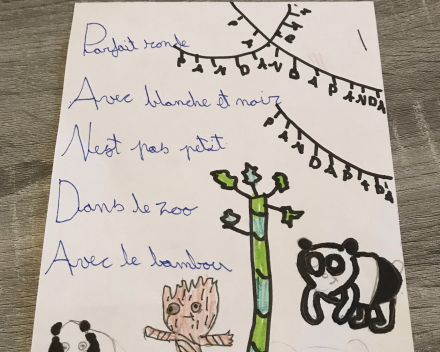 Parfait ronde
Avec blanche et noir
N'est pas petit
Dans le zoo
Avec le bambou
PANDA
PANDANDAPANDA
PANDAPANDA